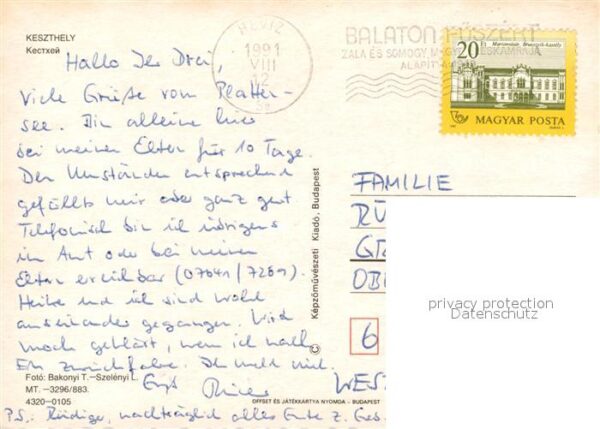 KESZTHELY
Кестхей
HÉVÍZ
1991
VIII
12
BALATON FŰSZÉRT
ZALA ÉS SOMOGY MEGYE ÉLÉSKAMRÁJA
20 Ft
MAGYAR POSTA
Hallo Ihr Drei,
Viele Grüße vom Platten-
see. Bin alleine hier
bei meinen Eltern für 10 Tage.
Den Umständen entsprechend
gefällts mir aber ganz gut
Telefonisch bin ich übrigens
im Amt oder bei meinen
Eltern erreichbar (07641/7289).
Heike und ich sind wohl
auseinander gegangen. Wird
noch geklärt, wenn ich nach
EM zurückfahre. Ich meld mich.
P.S.: Rüdiger, nachträglich alles Gute z. Geb.
FAMILIE
RÜ
GR
OB
6
WES
privacy protection
Datenschutz
© Képzőművészeti Kiadó, Budapest
Fotó: Bakonyi T.—Szelényi L.
MT. —3296/883.
4320—0105
OFFSET ÉS JÁTÉKKÁRTYA NYOMDA - BUDAPEST